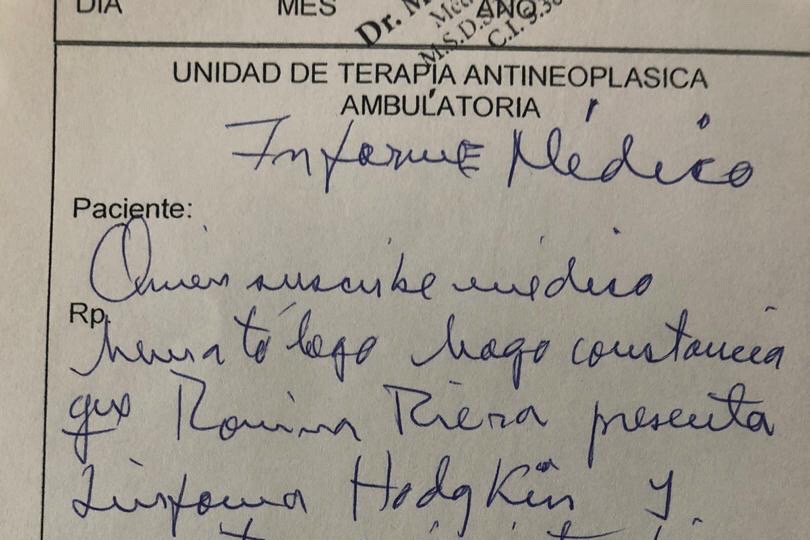 DIA MES AÑO
Dr. M
M.S.D.S
C.I. 9.38
UNIDAD DE TERAPIA ANTINEOPLASICA
AMBULATORIA
Informe Médico
Paciente:
Quien suscribe médico
Rp.
hematólogo hago constancia
que Romina Riera presenta
Linfoma Hodgkin y